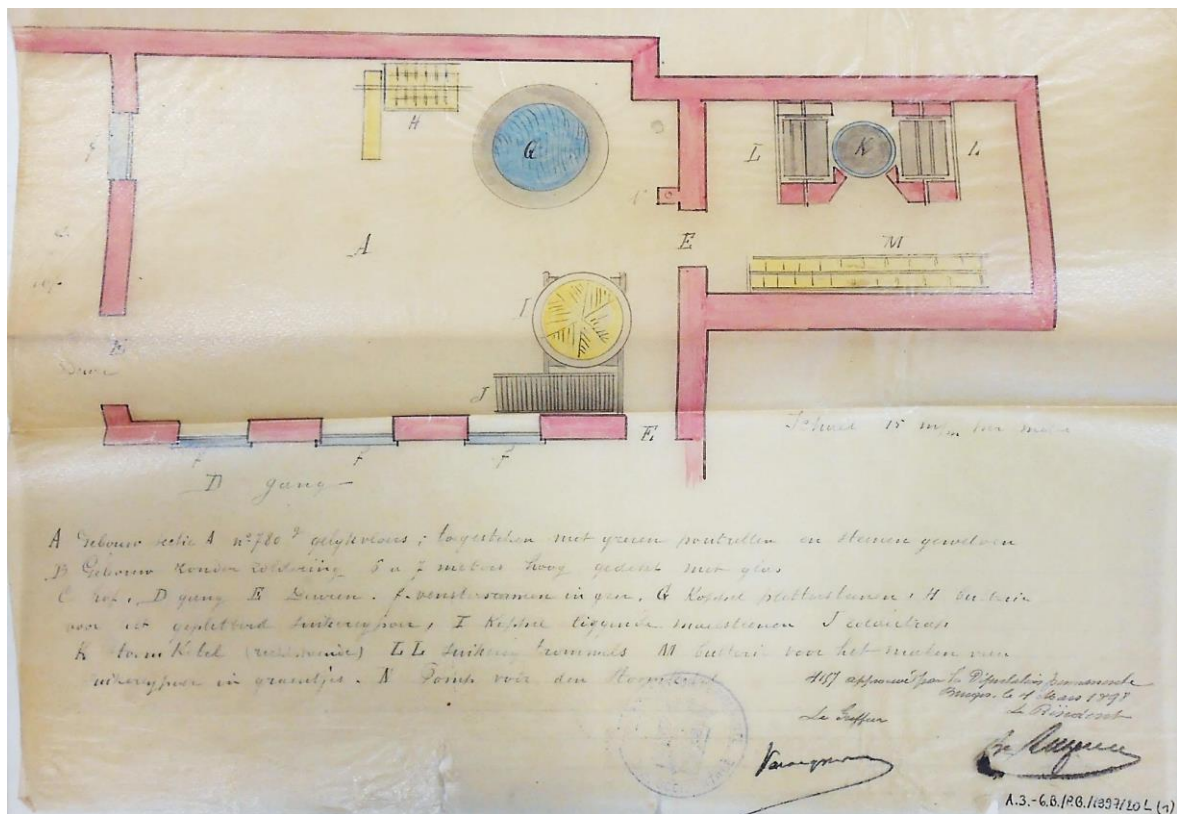 H
G
f
L
K
L
N
A
E
M
C
hof
I
E
Deure
J
E
f f f
Schaal 15 m/m per meter
D gang
A Gebouw sectie A nº 780 gelykvloers; toegesteken met yzeren poutrellen en steenen gewelven
B Gebouw zonder zoldering 6 a 7 meters hoog gedekt met glas
C hof, D gang E Deuren. f. vensterramen in yzer, G Koppel pletterstenen, H
voor het gepletterd suikerypoer, I Koppel liggende maalsteenen J
K stoom Ketel LL suikery trommels M voor het maken van
suikerypoer in graentjes. N Pomp voor den Stoomketel
approuvé par la Députation permanente
Bruges, le Mars
Le Greffier
Le Président
A.3.-G.B./P.B./1897/20L (1)